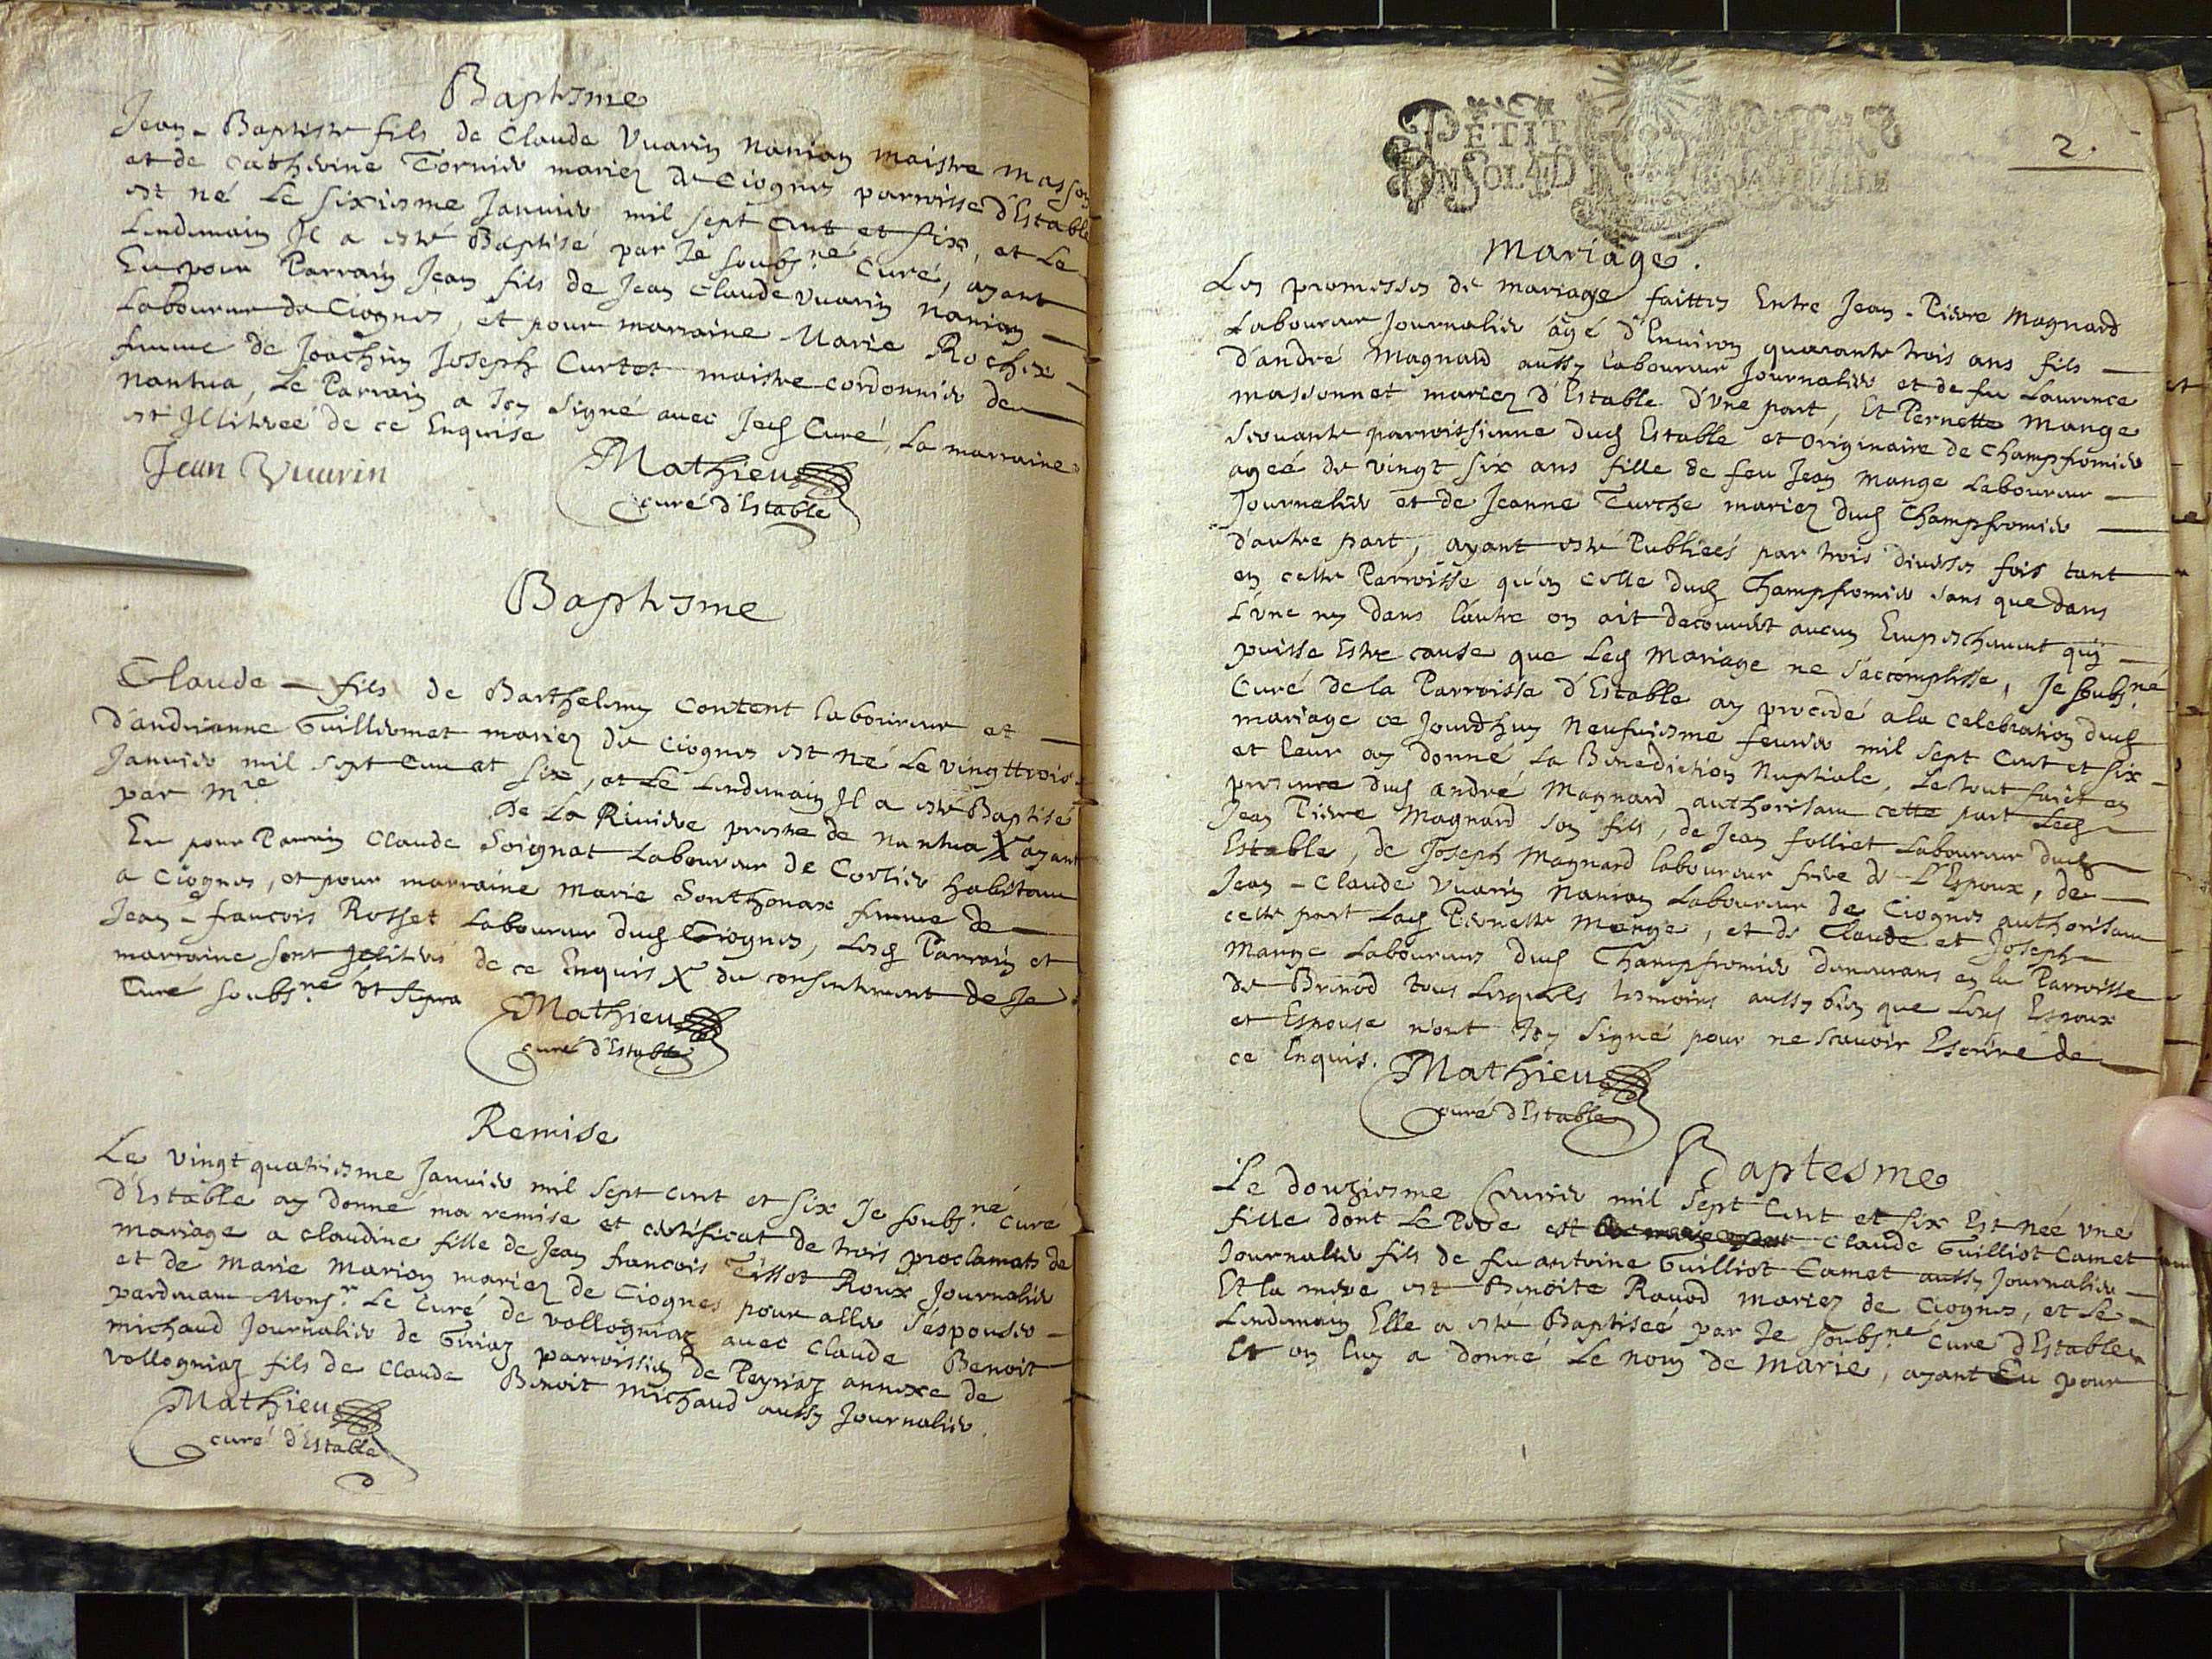 Baptesme
Jean-Baptiste fils de Claude Vuarin Nanian maistre masson
et de Catherine Tornier mariez de Ciognes parroisse d'Estable
est né Le sixiesme Janvier mil sept cent et six, et Le
Lendemain Il a esté Baptisé par Je soubs.né Curé, ayant
Eu pour Parrain Jean fils de Jean Claude vuarin Nanian
Laboureur de Ciognes, et pour marraine Marie Rochex
femme de Joachim Joseph Curtet maistre cordonnier de
nantua, Le Parrain a Icy signé avec Jeds Curé, La marraine
est Illitreé de ce Enquise
Jean Vuarin
Mathieu
curé d'Estable
Baptesme
Claude fils de Barthelemy Content laboureur et
d'andrianne Guilliermet mariez de Ciognes est né Le vingttrois
Janvier mil sept cent et six, et Le Lendemain Il a esté Baptisé
par Mre De La Riviere prestre de nantua X ayant
Eu pour Parrain Claude Soignat Laboureur de Corlier habitant
a Ciognes, et pour marraine Marie Sonthonax femme de
Jean-francois Rosset Laboureur duds Ciognes, Lesds Parrain et
marraine sont Illitrés de ce Enquis X du consentement de Je
Curé soubs.né ut supra
Mathieu
curé d'Estable
Remise
Le vingt quatriesme Janvier mil sept cent et six Je soubs.né curé
d'Estable ay donné ma remise et certificat de trois proclamats de
mariage a claudine fille de Jean francois Tissot Roux Journalier
et de Marie Marion mariez de Ciognes pour aller s'espouser
pardevant Monsr. Le Curé de vollogniaz avec Claude Benoit
michaud Journalier de Giriaz parroissien de Peyriaz annexe de
vollogniaz fils de Claude Benoit michaud aussy Journalier.
Mathieu
curé d'Estable
2.
PETIT PAPIER
UN SOL 4 D LA FEUILLE
Mariage.
Les promesses de mariage faittes Entre Jean-Pierre Magnard
Laboureur Journalier âgé d'Environ quarante trois ans fils
d'andré Magnard aussy laboureur Journalier et de feu Laurence
massonnet mariez d'Estable d'une part, Et Pernette Mange
servante parroissienne duds Estable et originaire de Champfromier
ageé de vingt six ans fille de feu Jean Mange Laboureur
Journalier et de Jeanne Turche mariez duds Champfromier
d'autre part, ayant esté Publieés par trois diverses fois tant
en cette Parroisse qu'en celle duds Champfromier sans que dans
L'une ny dans l'autre on ait decouvert aucun Empeschement qui
puisse Estre cause que Leds Mariage ne s'accomplisse, Je soubs.né
Curé de la Parroisse d'Estable ay procedé a la celebration duds
mariage ce Jourd'huy neufviesme fevrier mil sept cent et six
et leur ay donné La Benediction Nuptiale, Le tout faict en
presence duds andré Magnard authorisant cette part Leds
Jean Pierre Magnard son fils, de Jean folliet Laboureur duds
Estable, de Joseph Magnard laboureur frere de L'Espoux, de
Jean-Claude Vuarin Nanian Laboureur de Ciognes authorisant
cette part Lads Pernette Mange, et de Claude et Joseph
Mange Laboureurs duds Champfromier demeurans en la Parroisse
de Brenod tous Lesquels tesmoins aussy bien que Lesds Espoux
et Espouse n'ont Icy signé pour ne scavoir Escrire de
ce Enquis.
Mathieu
curé d'Estable
Baptesme
Le douziesme fevrier mil sept cent et six Est neé une
fille dont Le Pere est Claude Guilliot Camet
Journalier fils de feu antoine Guilliot Camet aussy Journalier
Et la mere est Benoite Ravod mariez de Ciognes, et Le
Lendemain Elle a esté Baptiseé par Je soubs.né Curé d'Estable
Et on luy a donné Le nom de Marie, ayant Eu pour